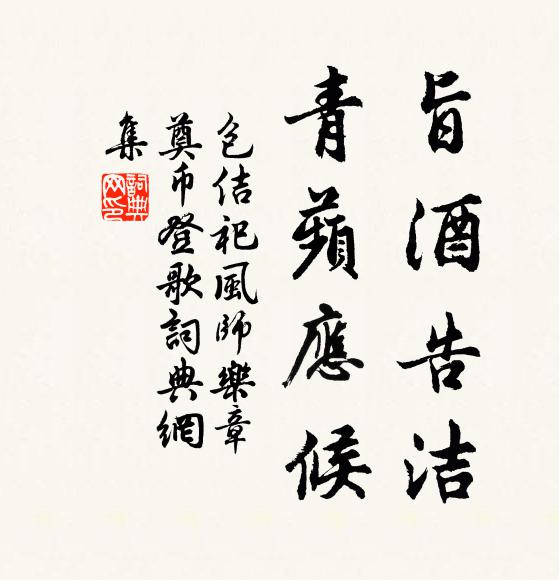 旨酒告洁
青蘋應候
包佶祀風師樂章
奠币登歌詞典網
集
詞典
网印